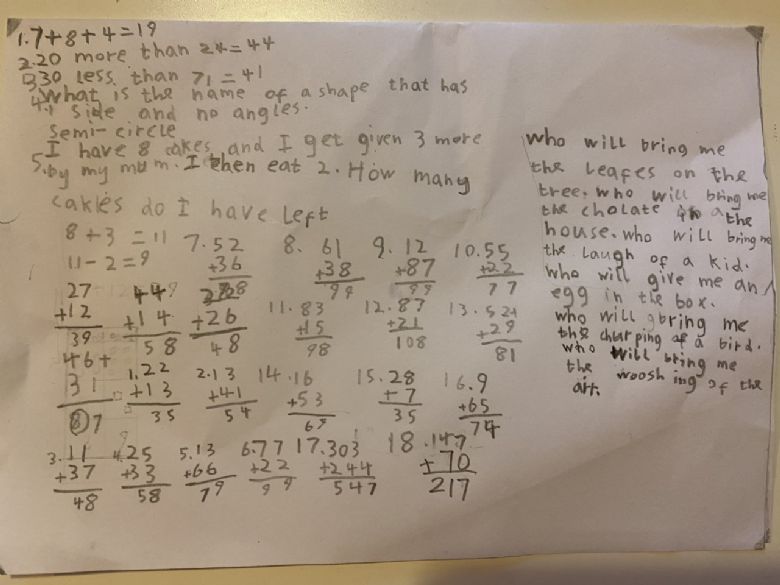 1.7+8+4=19
2.20 more than 24=44
3.30 less than 71=41
4. What is the name of a shape that has
1 side and no angles.
Semi-circle
5. I have 8 cakes, and I get given 3 more
by my mum. I then eat 2. How many
cakles do I have left
8+3=11
11-2=9
27
+12
39
44
+14
58
22
+26
48
46+
31
87
7.52
+36
88
8. 61
+38
99
9. 12
+87
99
10.55
+22
77
11.83
+15
98
12.87
+21
108
13.52
+29
81
1.22
+13
35
2.13
+41
54
14.16
+53
69
15.28
+7
35
16.9
+65
74
3.11
+37
48
4.25
+33
58
5.13
+66
79
6.77
+22
99
17.303
+244
547
18.147
+70
217
who will bring me
the leafes on the
tree. who will bring me
the cholate in the
house. who will bring me
the laugh of a kid.
who will give me an
egg in the box.
who will bring me
the churping of a bird.
who will bring me
the woosh ing of the
air.